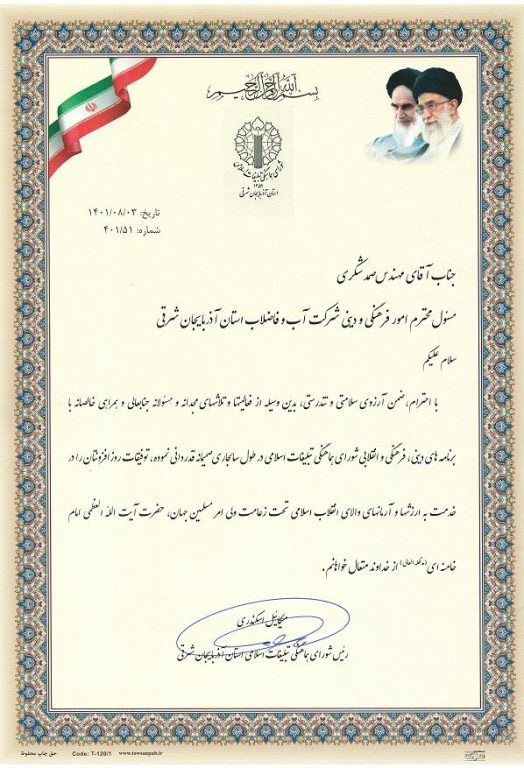 بسم الله الرحمن الرحیم
شورای هماهنگی تبلیغات اسلامی
۱۳۵۹
استان آذربایجان شرقی
تاریخ: ۱۴۰۱/۰۸/۰۳
شماره: ۴۰۱/۵۱
جناب آقای مهندس صمد شکری
مسئول محترم امور فرهنگی و دینی شرکت آب و فاضلاب استان آذربایجان شرقی
سلام علیکم
با احترام، ضمن آرزوی سلامتی و تندرستی، بدین وسیله از فعالیتها و تلاشهای مجدانه و مسئولانه جنابعالی و همراهی خالصانه با
برنامه های دینی، فرهنگی و انقلابی شورای هماهنگی تبلیغات اسلامی در طول سالجاری صمیمانه قدردانی نموده، توفیقات روزافزونتان را در
خدمت به ارزشها و آرمانهای والای انقلاب اسلامی تحت زعامت ولی امر مسلمین جهان، حضرت آیت الله العظمی امام
خامنه ای (مدظله العالی) از خداوند متعال خواهانم.
میکائیل اسکندری
رئیس شورای هماهنگی تبلیغات اسلامی استان آذربایجان شرقی
حق چاپ محفوظ Code: T-120/1 www.sowsanpub.ir